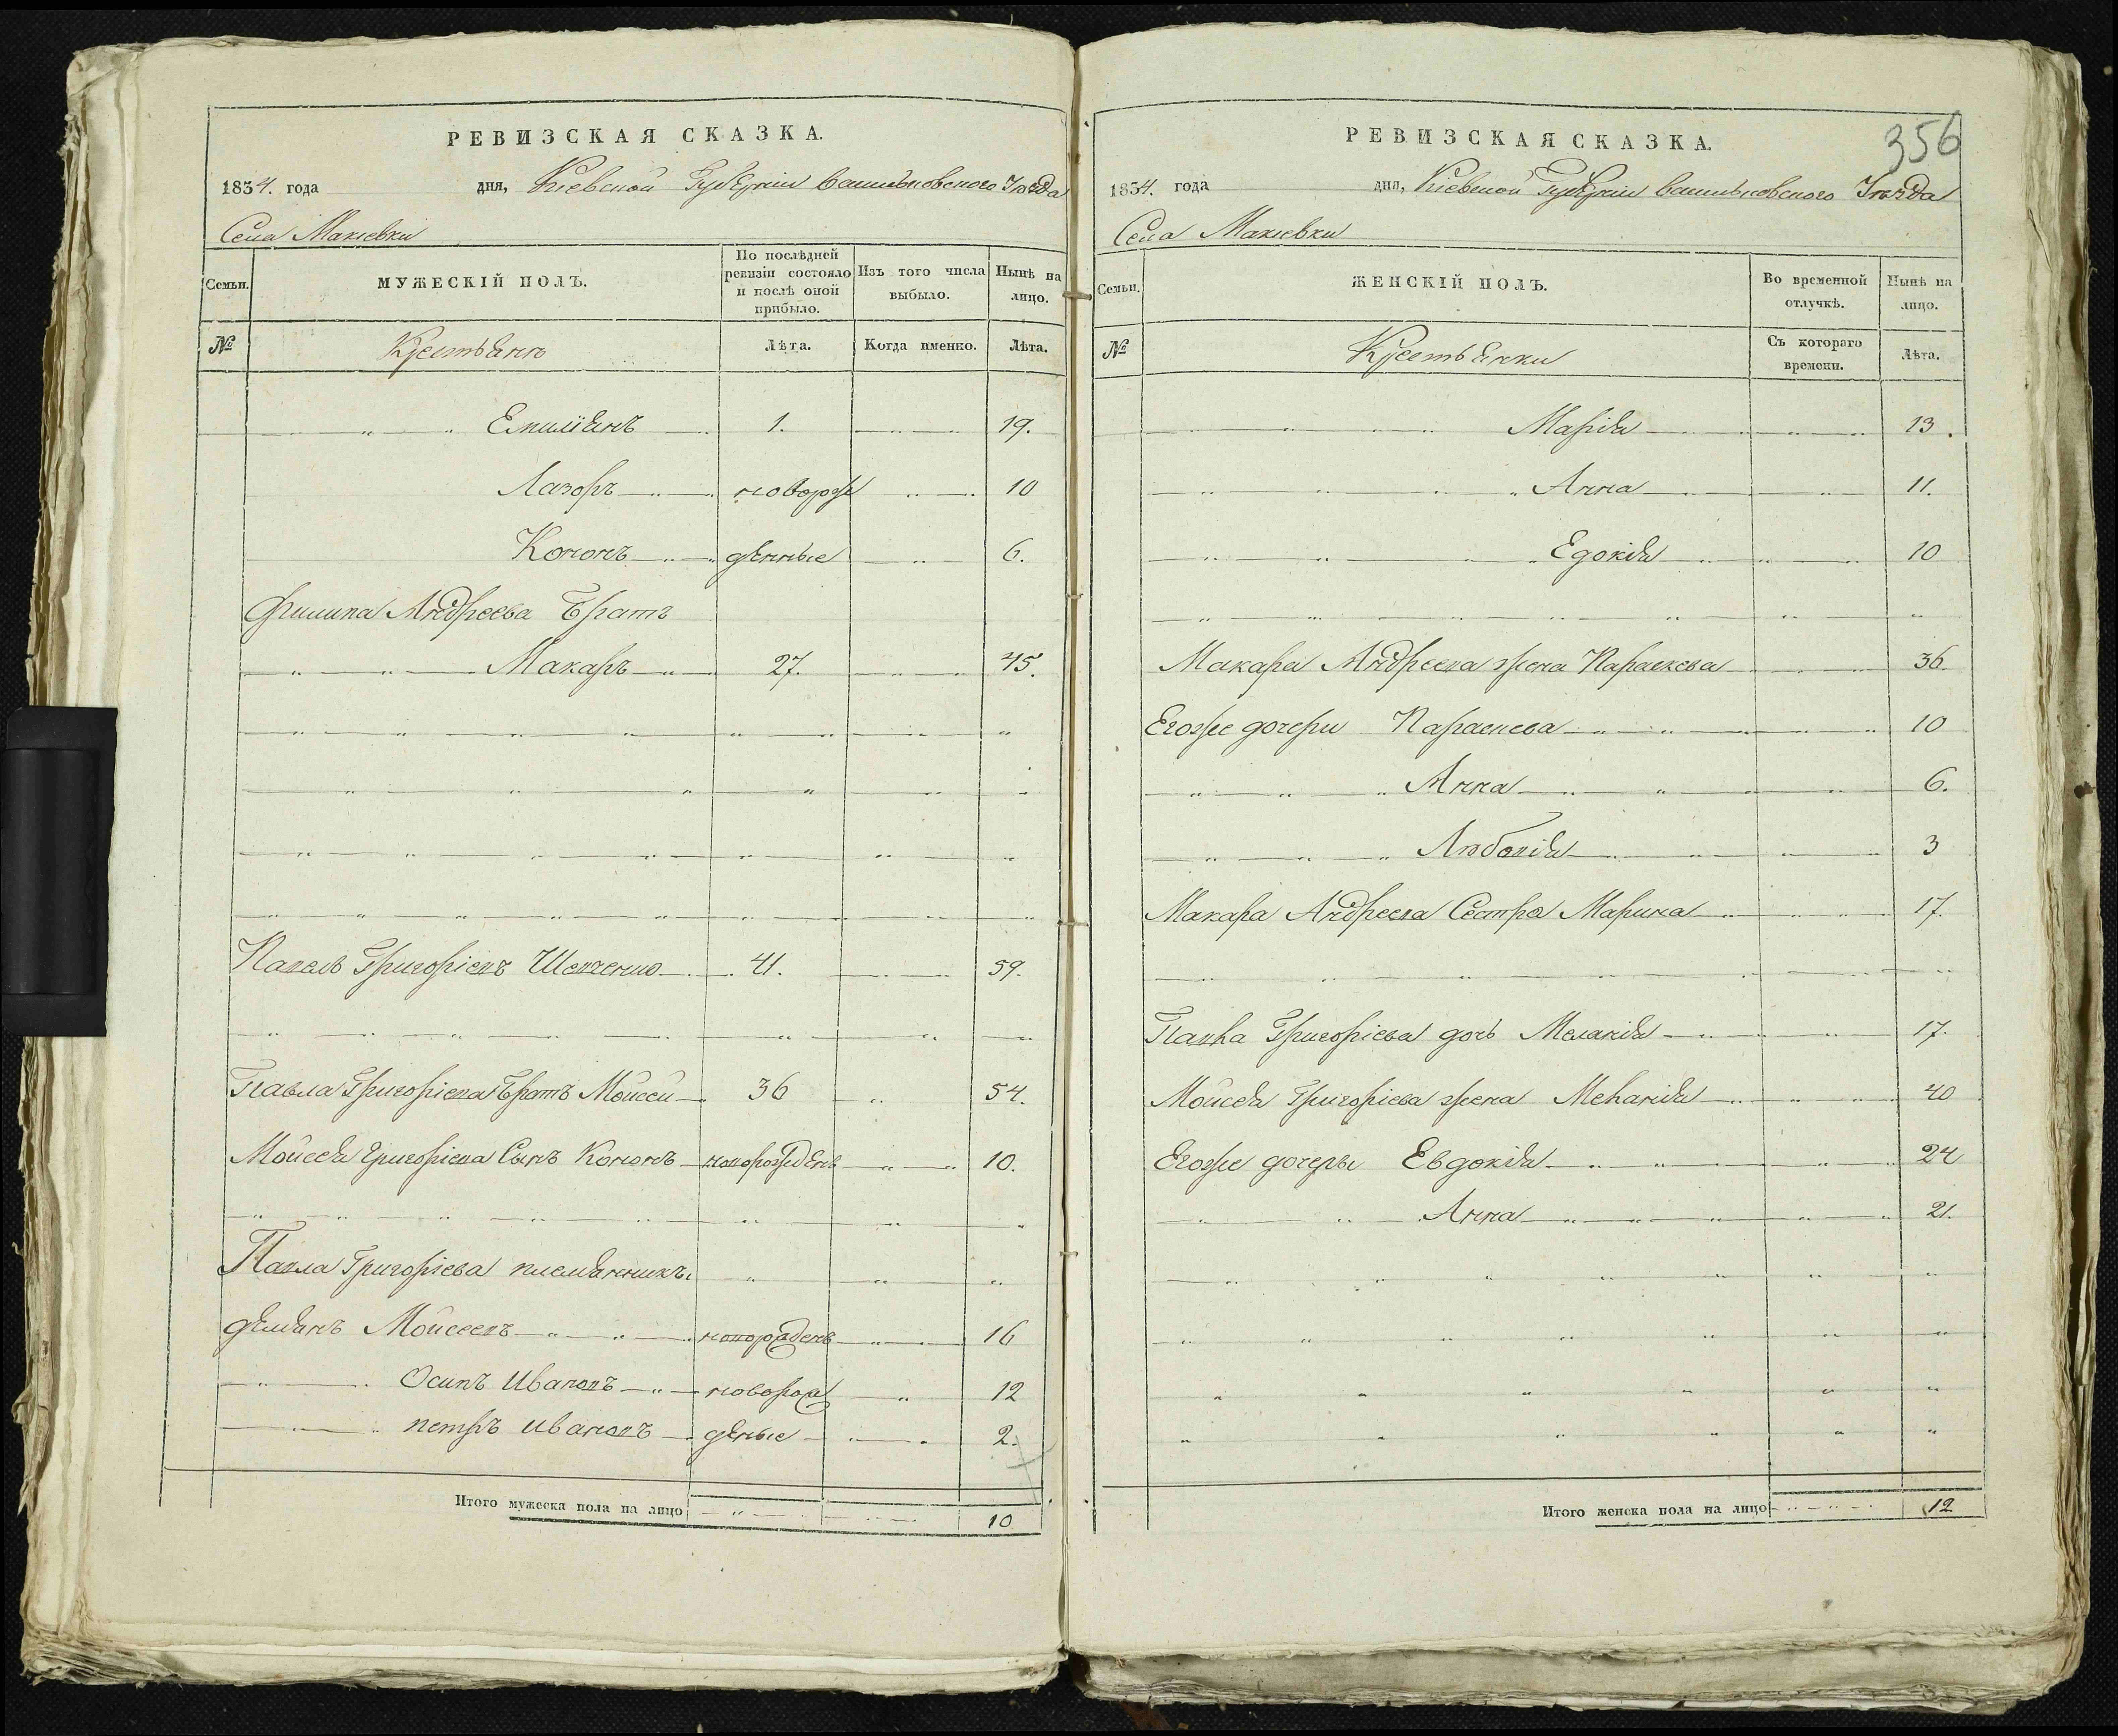 РЕВИЗСКАЯ СКАЗКА.
1854. года дня, Кіевской Губерніи Васильковского Уѣзда
Села Макіевки
Семьи. МУЖЕСКІЙ ПОЛЪ. По послѣдней ревизіи состояло и послѣ оной прибыло. Изъ того числа выбыло. Нынѣ на лицо.
№ Крестьяни Лѣта. Когда именно. Лѣта.
Емилiянъ 1. 19.
Лазоръ новорож 10
Кононъ денные 6.
Филипа Андреева Братъ
Макаръ 27. 45.
Павелъ Григоріевъ Шевченко 41. 59.
Павла Григоріева Братъ Мойсей 36 54.
Мойсея Григоріева Сынъ Кононъ новорожденъ 10.
Павла Григоріева племянникъ
демянъ Мойсеевъ новорожденъ 16
Осипъ Ивановъ новорож 12
петръ Ивановъ деные 2.
Итого мужеска пола на лицо 10
356
РЕВИЗСКАЯ СКАЗКА.
1854. года дня, Кіевской Губерніи Васильковского Уѣзда
Села Макіевки
Семьи. ЖЕНСКІЙ ПОЛЪ. Во временной отлучкѣ. Нынѣ на лицо.
№ Крестьянки Съ котораго времени. Лѣта.
Марія 13.
Анна 11.
Едокія 10
Макара Андреева жена Параскева 36.
Егоже дочери Параскева 10
Анна 6.
Любовія 3
Макара Андреева Сестра Марина 17.
Павла Григоріева дочь Меланія 17.
Мойсея Григоріева жена Меланія 40
Егоже дочеры Евдокія 24
Анна 21.
Итого женска пола на лицо 12